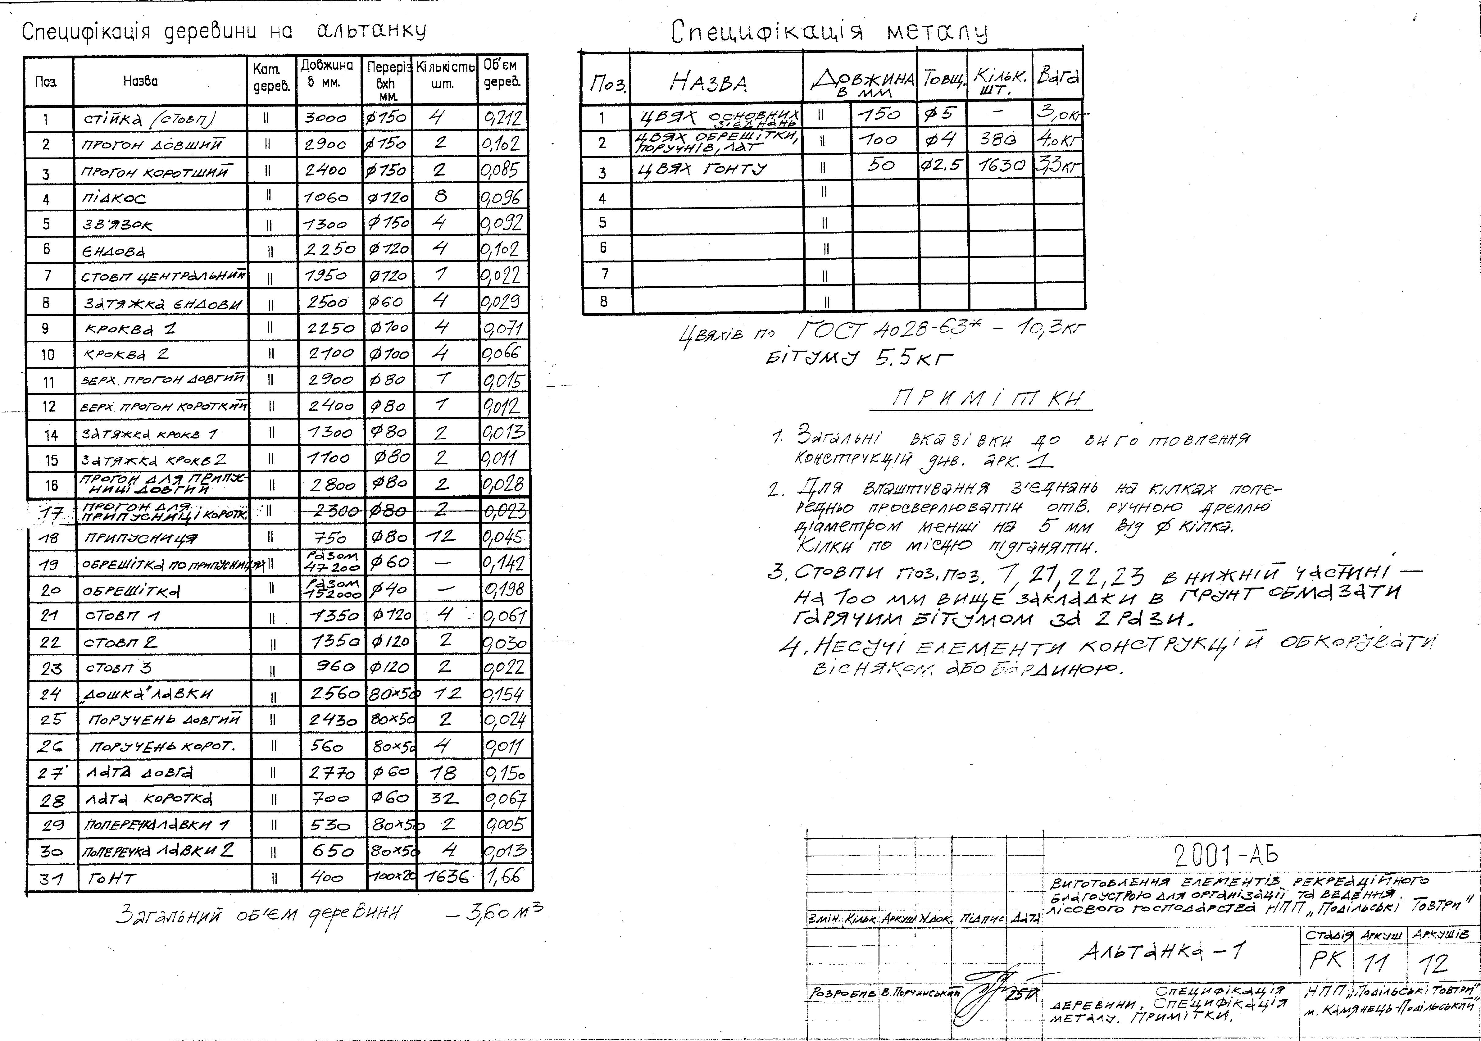 Специфікація деревини на альтанку
Поз. Назва Кат. дерев. Довжина в мм. Переріз вхh мм. Кількість шт. Об'єм дерев.
1 СТІЙКА (СТОВП) || 3000 ϕ150 4 0,212
2 ПРОГОН ДОВШИЙ || 2900 ϕ150 2 0,102
3 ПРОГОН КОРОТШИЙ || 2400 ϕ150 2 0,085
4 ПІДКОС || 1060 ϕ120 8 0,096
5 ЗВ'ЯЗОК || 1300 ϕ150 4 0,092
6 ЄНДОВА || 2250 ϕ120 4 0,102
7 СТОВП ЦЕНТРАЛЬНИЙ || 1950 ϕ120 1 0,022
8 ЗАТЯЖКА ЄНДОВИ || 2500 ϕ60 4 0,029
9 КРОКВА 1 || 2250 ϕ100 4 0,071
10 КРОКВА 2 || 2100 ϕ100 4 0,066
11 ВЕРХ. ПРОГОН ДОВГИЙ || 2900 ϕ80 1 0,015
12 ВЕРХ. ПРОГОН КОРОТКИЙ || 2400 ϕ80 1 0,012
14 ЗАТЯЖКА КРОКВ 1 || 1300 ϕ80 2 0,013
15 ЗАТЯЖКА КРОКВ 2 || 1100 ϕ80 2 0,011
16 ПРОГОН ДЛЯ ПРИПУЖ-
НИЦІ ДОВГИЙ || 2800 ϕ80 2 0,028
17 ПРОГОН ДЛЯ
ПРИПУСНИЦІ КОРОТК. || 2300 ϕ80 2 0,023
18 ПРИПУСНИЦЯ || 750 ϕ80 12 0,045
19 ОБРЕШІТКА ПО ПРИПУЖНИЦЯХ || Разом 47200 ϕ60 — 0,142
20 ОБРЕШІТКА || Разом 152000 ϕ40 — 0,198
21 СТОВП 1 || 1350 ϕ120 4 0,061
22 СТОВП 2 || 1350 ϕ120 2 0,030
23 СТОВП 3 || 960 ϕ120 2 0,022
24 "ДОШКА" ЛАВКИ || 2560 80×50 12 0,154
25 ПОРУЧЕНЬ ДОВГИЙ || 2430 80×50 2 0,024
26 ПОРУЧЕНЬ КОРОТ. || 560 80×50 4 0,011
27 ЛАТА ДОВГА || 2770 ϕ60 18 0,150
28 ЛАТА КОРОТКА || 700 ϕ60 32 0,067
29 ПОПЕРЕЧКА ЛАВКИ 1 || 530 80×50 2 0,005
30 ПОПЕРЕЧКА ЛАВКИ 2 || 650 80×50 4 0,013
31 ГОНТ || 400 100×20 1636 1,66
Загальний об'єм деревини — 3,60 м³
Специфікація металу
Поз. НАЗВА ДОВЖИНА В ММ ТОВЩ. КІЛЬК. ШТ. ВАГА
1 ЦВЯХ ОСНОВНИХ
З'ЄДНАНЬ || 150 ϕ5 — 3,0кг
2 ЦВЯХ ОБРЕШІТКИ,
ПОРУЧНІВ, ЛАТ || 100 ϕ4 380 4.0кг
3 ЦВЯХ ГОНТУ || 50 ϕ2.5 1630 3,3кг
4 ||
5 ||
6 ||
7 ||
8 ||
Цвяхів по ГОСТ 4028-63* - 10,3кг
БІТУМУ 5.5кг
ПРИМІТКИ
1. Загальні вказівки до виготовлення
конструкцій див. арк. 1
2. Для влаштування з'єднань на кілках попе-
редньо просверлювати отв. ручною дреллю
діаметром менші на 5 мм від ϕ кілка.
Кілки по місцю підганяти.
3. СТОВПИ ПОЗ.ПОЗ. 1, 21, 22, 23 В НИЖНІЙ ЧАСТИНІ —
НА 100 ММ ВИЩЕ ЗАКЛАДКИ В ҐРУНТ ОБМАЗАТИ
ГАРЯЧИМ БІТУМОМ ЗА 2 РАЗИ.
4. НЕСУЧІ ЕЛЕМЕНТИ КОНСТРУКЦІЙ ОБКОРУВАТИ
ВІСНЯКОМ АБО БАРДИНОЮ.
2001-АБ
ВИГОТОВЛЕННЯ ЕЛЕМЕНТІВ РЕКРЕАЦІЙНОГО
БЛАГОУСТРОЮ ДЛЯ ОРГАНІЗАЦІЇ ТА ВЕДЕННЯ
ЛІСОВОГО ГОСПОДАРСТВА НПП „Подільські Товтри"
Змін. Кільк. Аркуш №док. Підпис Дата
Альтанка - 1
СТАДІЯ АРКУШ АРКУШІВ
РК 11 12
Розробив В. Порчинський
СПЕЦИФІКАЦІЯ
ДЕРЕВИНИ. СПЕЦИФІКАЦІЯ
МЕТАЛУ. ПРИМІТКИ.
НПП „Подільські Товтри"
м. Камянець-Подільський